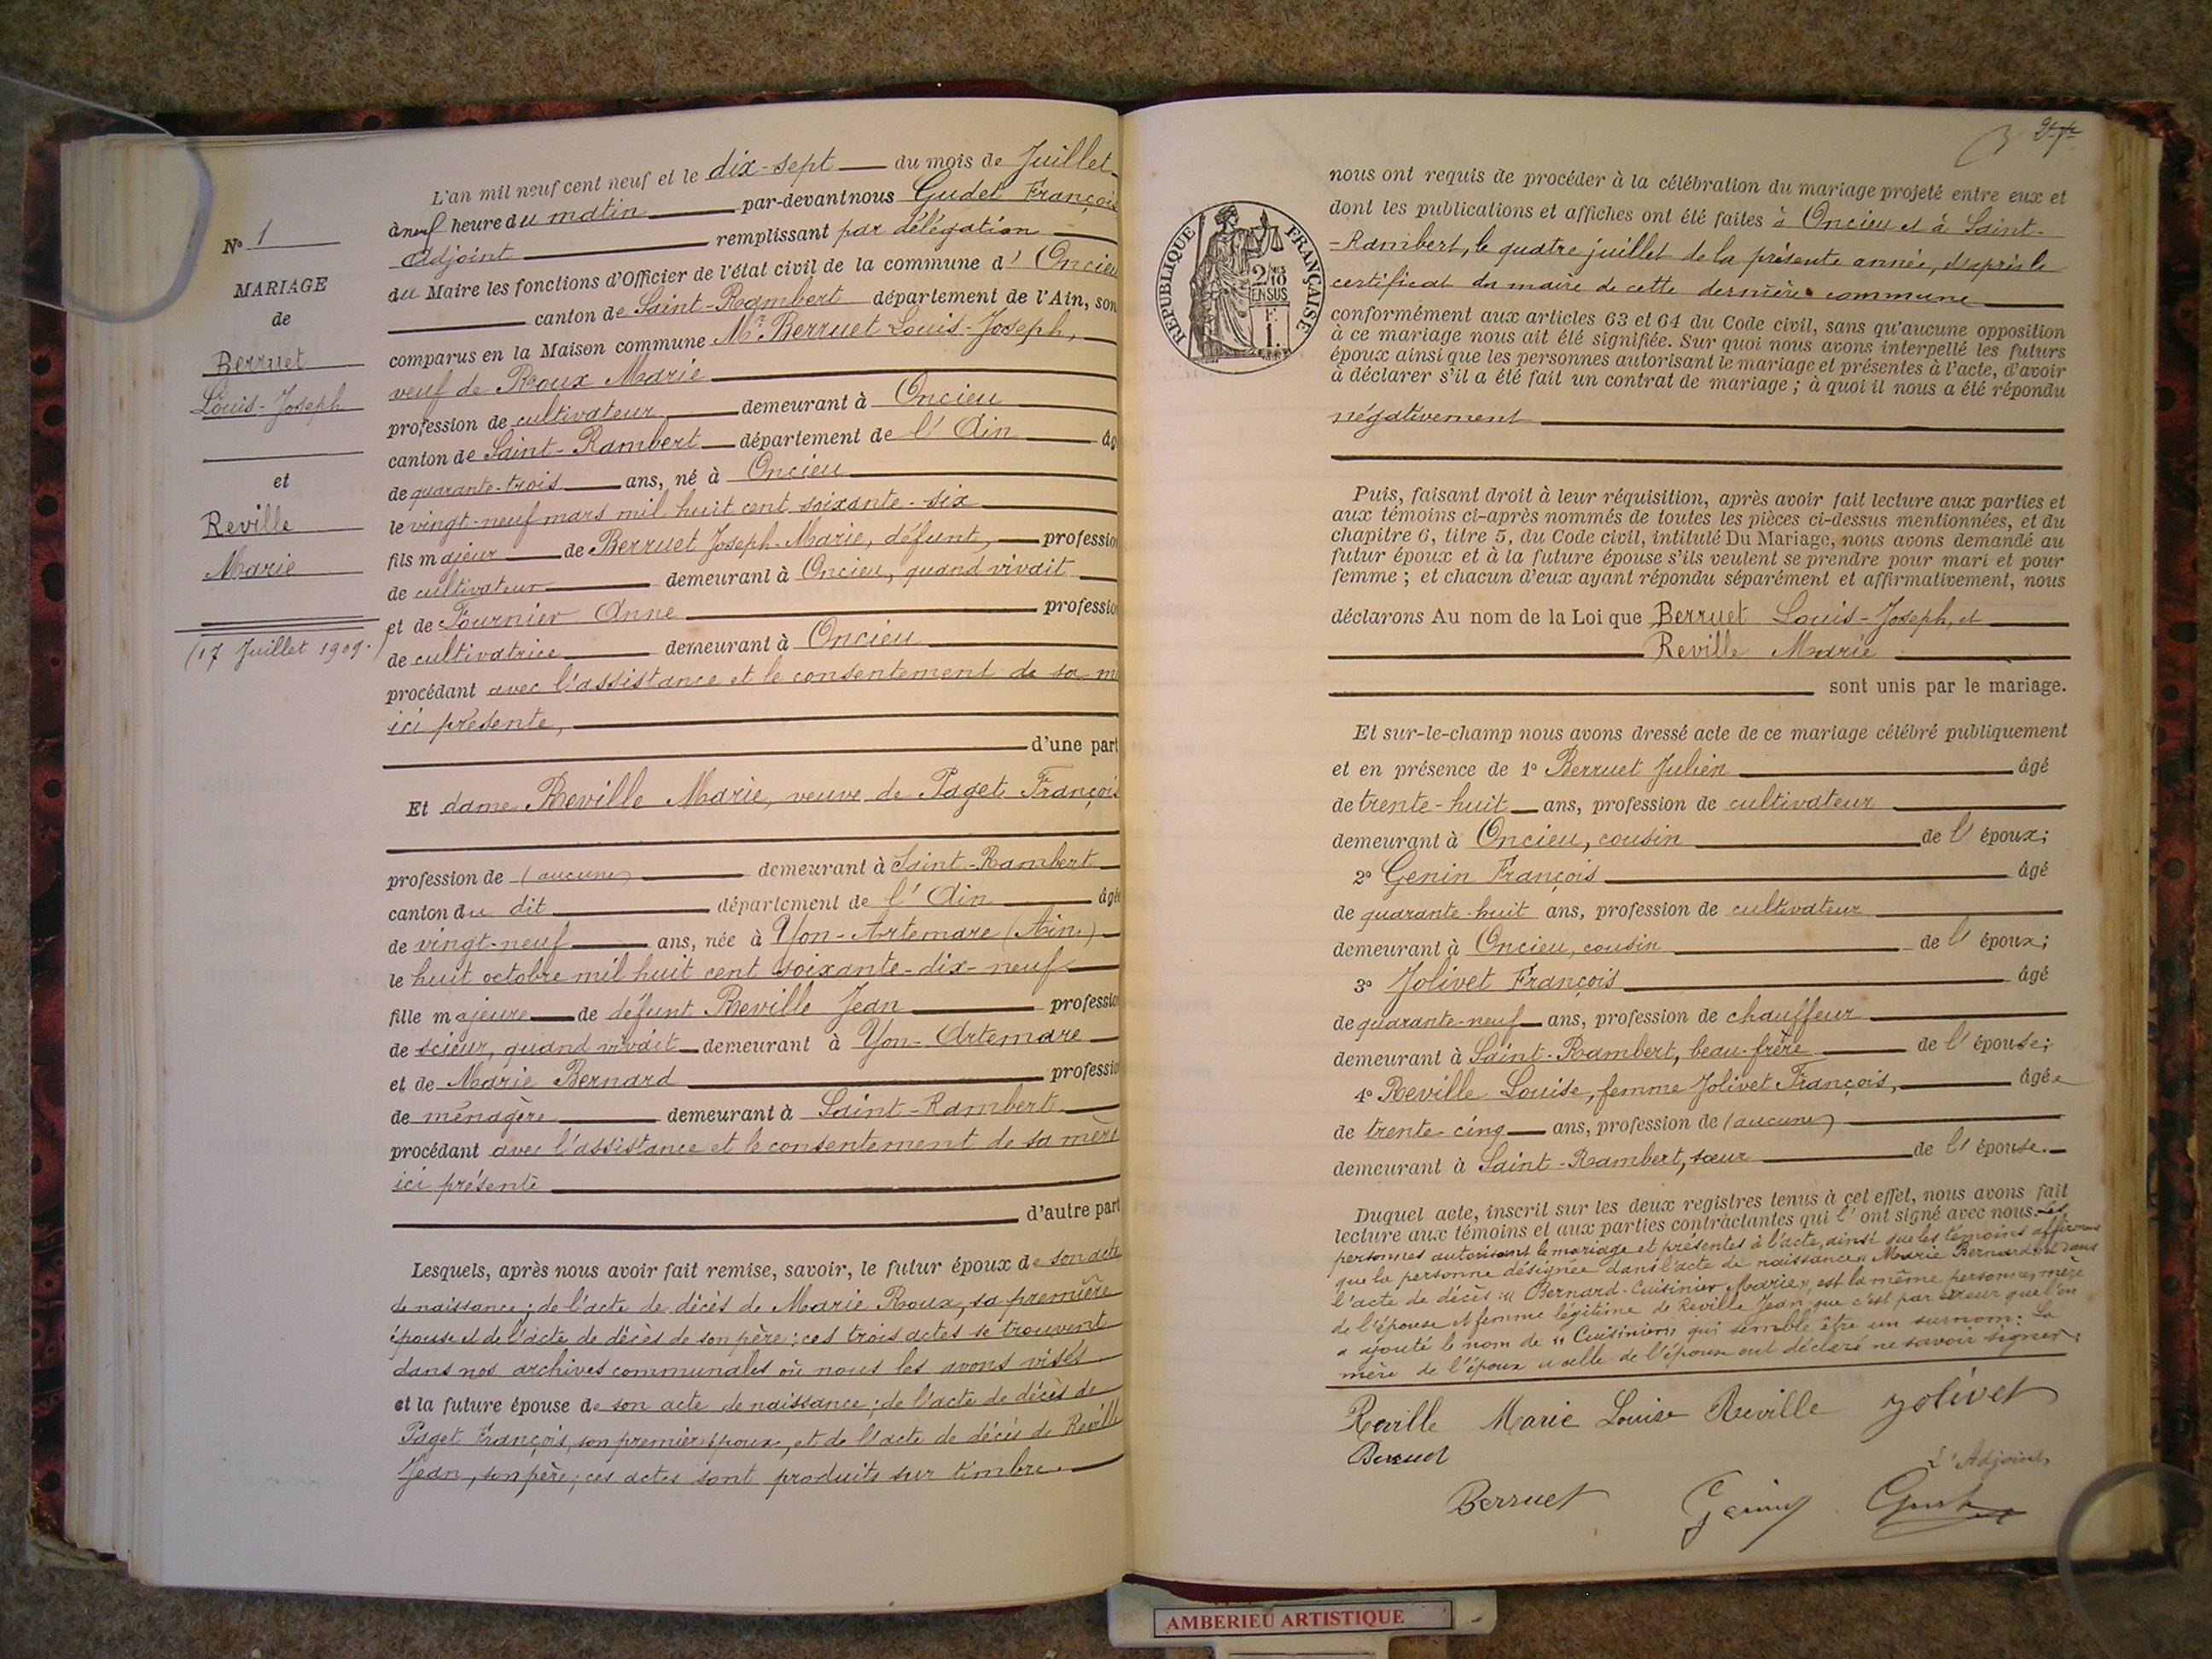 N° 1
MARIAGE
de
Berruet
Louis-Joseph
et
Reville
Marie
(17 Juillet 1909.)
L'an mil neuf cent neuf et le dix-sept du mois de Juillet
à neuf heure du matin par-devant nous Gudet François
adjoint remplissant par délégation
du Maire les fonctions d'Officier de l'état civil de la commune d' Oncieu
canton de Saint-Rambert département de l'Ain, son
comparus en la Maison commune Mr Berruet Louis-Joseph,
veuf de Roux Marie
profession de cultivateur demeurant à Oncieu
canton de Saint-Rambert département de l' Ain âg
de quarante-trois ans, né à Oncieu
le vingt-neuf mars mil huit cent soixante-six
fils majeur de Berruet Joseph-Marie, défunt, professio
de cultivateur demeurant à Oncieu, quand vivait
et de Fournier Anne professio
de cultivatrice demeurant à Oncieu
procédant avec l'assistance et le consentement de sa m
ici présente,
d'une part
Et dame Reville Marie, veuve de Paget François
profession de (aucune) demeurant à Saint-Rambert
canton du dit département de l' Ain âgé
de vingt-neuf ans, née à Yon-Artemare (Ain)
le huit octobre mil huit cent soixante-dix-neuf
fille majeure de défunt Reville Jean professio
de scieur, quand vivait demeurant à Yon-Artemare
et de Marie Bernard professio
de ménagère demeurant à Saint-Rambert
procédant avec l'assistance et le consentement de sa mère
ici présente
d'autre part
Lesquels, après nous avoir fait remise, savoir, le futur époux de son acte
de naissance; de l'acte de décès de Marie Roux, sa première
épouse et de l'acte de décès de son père: ces trois actes se trouvent
dans nos archives communales où nous les avons visés.
et la future épouse de son acte de naissance; de l'acte de décès de
Paget François, son premier époux, et de l'acte de décès de Reville
Jean, son père; ces actes sont produits sur timbre.
3
RÉPUBLIQUE FRANÇAISE
2/10
EN SUS
F.
1.
nous ont requis de procéder à la célébration du mariage projeté entre eux et
dont les publications et affiches ont été faites à Oncieu et à Saint-
-Rambert, le quatre juillet de la présente année, d'après le
certificat du maire de cette dernière commune
conformément aux articles 63 et 64 du Code civil, sans qu'aucune opposition
à ce mariage nous ait été signifiée. Sur quoi nous avons interpellé les futurs
époux ainsi que les personnes autorisant le mariage et présentes à l'acte, d'avoir
à déclarer s'il a été fait un contrat de mariage; à quoi il nous a été répondu
négativement
Puis, faisant droit à leur réquisition, après avoir fait lecture aux parties et
aux témoins ci-après nommés de toutes les pièces ci-dessus mentionnées, et du
chapitre 6, titre 5, du Code civil, intitulé Du Mariage, nous avons demandé au
futur époux et à la future épouse s'ils veulent se prendre pour mari et pour
femme; et chacun d'eux ayant répondu séparément et affirmativement, nous
déclarons Au nom de la Loi que Berruet Louis-Joseph, et
Reville Marie
sont unis par le mariage.
Et sur-le-champ nous avons dressé acte de ce mariage célébré publiquement
et en présence de 1° Berruet Julien âgé
de trente-huit ans, profession de cultivateur
demeurant à Oncieu, cousin de l' époux;
2° Genin François âgé
de quarante-huit ans, profession de cultivateur
demeurant à Oncieu, cousin de l' époux;
3° Jolivet François âgé
de quarante-neuf ans, profession de chauffeur
demeurant à Saint-Rambert, beau-frère de l' épouse;
4° Reville Louise, femme Jolivet François, âgée
de trente-cinq ans, profession de (aucune)
demeurant à Saint-Rambert, sœur de l' épouse.
Duquel acte, inscrit sur les deux registres tenus à cet effet, nous avons fait
lecture aux témoins et aux parties contractantes qui l' ont signé avec nous. Les
personnes autorisant le mariage et présentes à l'acte, ainsi que les témoins affirment
que la personne désignée dans l'acte de naissance « Marie Bernard » et dans
l'acte de décès « Bernard-Cuisinier Marie », est la même personne, mère
de l'épouse et femme légitime de Reville Jean, que c'est par erreur que l'on
a ajouté le nom de « Cuisinier » qui semble être un surnom. La
mère de l'époux et celle de l'épouse ont déclaré ne savoir signer.
Reville Marie Louise Reville Jolivet
Berruet
L'Adjoint,
Berruet Genin Gudet
AMBERIEU ARTISTIQUE